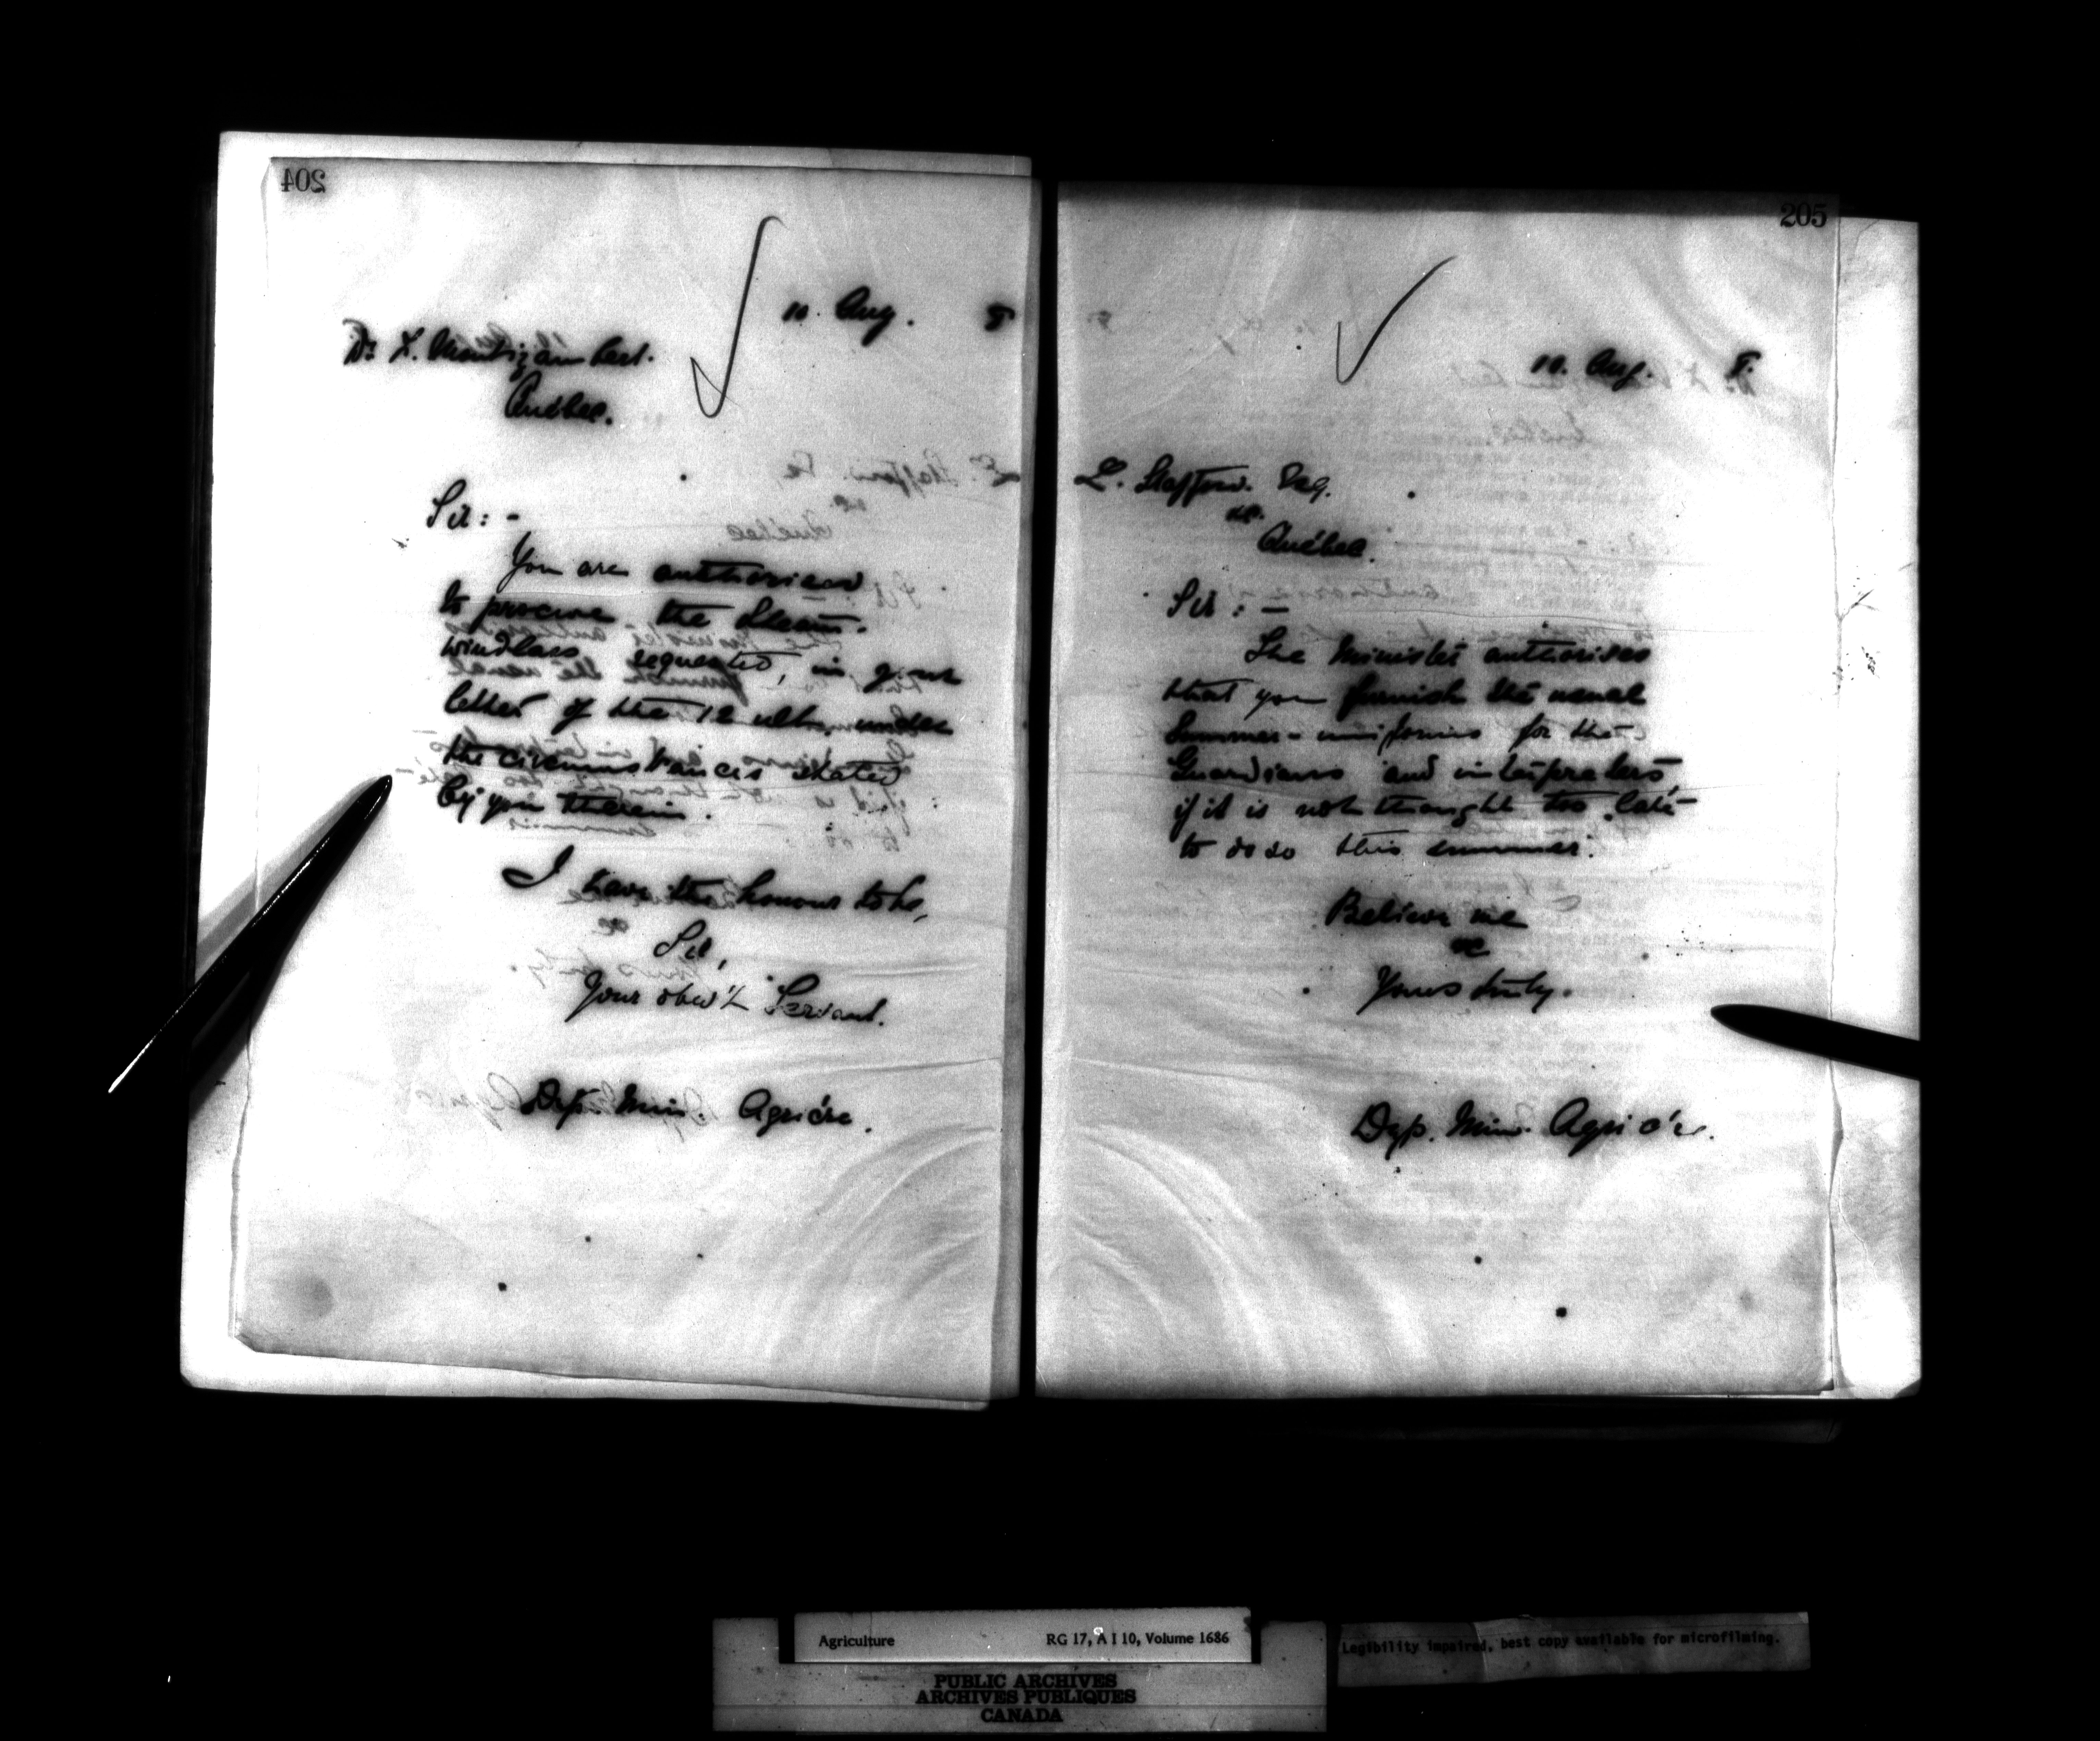 204
10. Aug. 8
Dr. F. Montizambert.
Québec.
Sir: -
You are authorised
to procure the Steam-
windlass requested, in your
letter of the 12 ulto, under
the circumstances stated
by you therein.
I have the honour to be,
Sir,
Your obed't Servant.
Dep. Min. Agric're.
205
10. Aug. 8.
L. Stafford. Esq.
Québec.
Sir: -
The Minister authorises
that you furnish the usual
Summer-uniforms for the
Guardians and interpreters,
if it is not thought too late
to do so this summer.
Believe me
&c
Yours truly.
Dep. Min. Agric're.
Agriculture RG 17, A I 10, Volume 1686
PUBLIC ARCHIVES
ARCHIVES PUBLIQUES
CANADA
Legibility impaired, best copy available for microfilming.